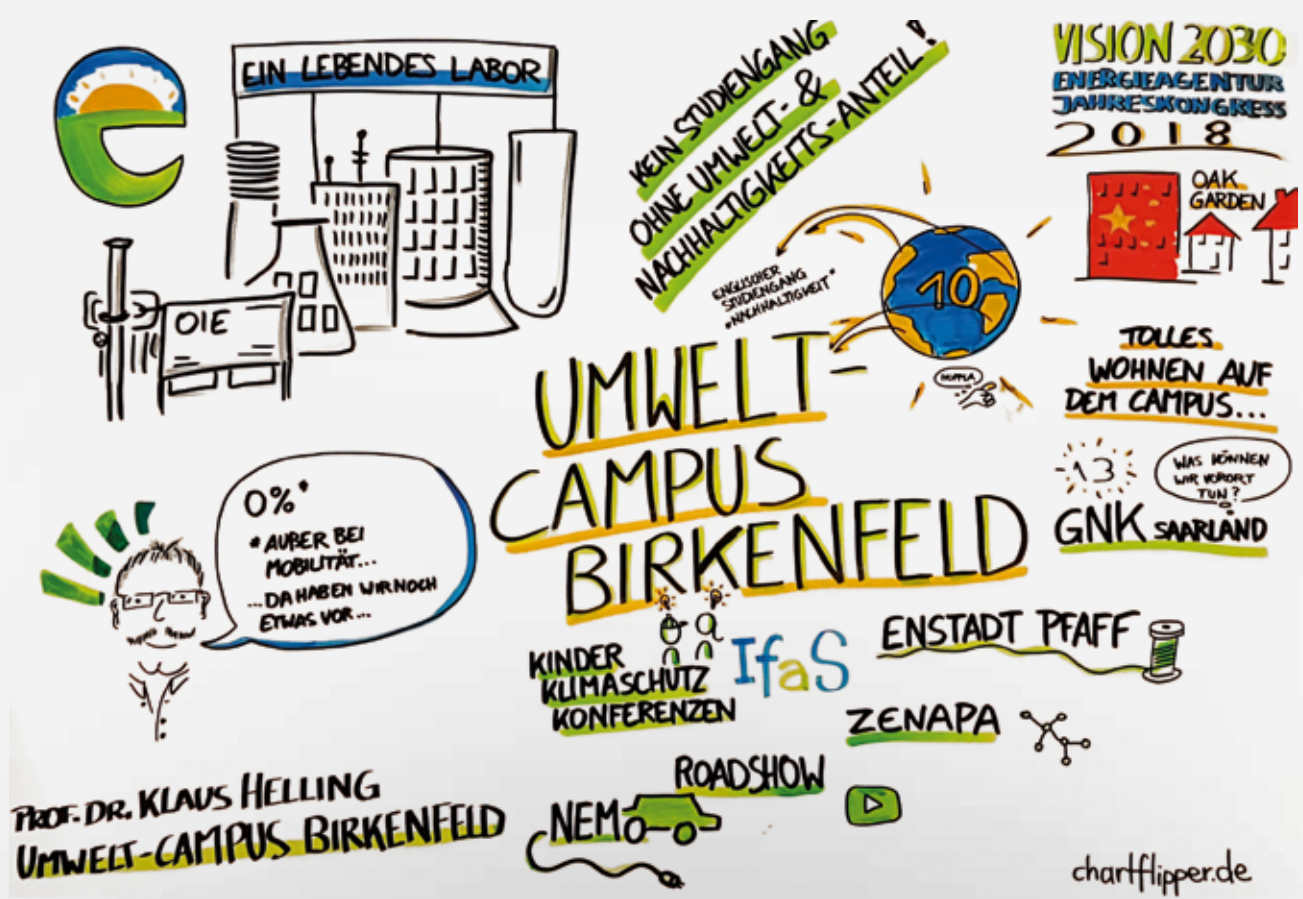 EIN LEBENDES LABOR
OIE
KEIN STUDIENGANG
OHNE UMWELT- &
NACHHALTIGKEITS-ANTEIL!
VISION 2030
ENERGIEAGENTUR
JAHRESKONGRESS
2018
OAK
GARDEN
ENGLISCHER
STUDIENGANG
"NACHHALTIGKEIT"
10
HOPPLA
TOLLES
WOHNEN AUF
DEM CAMPUS...
UMWELT-
CAMPUS
BIRKENFELD
13
WAS KÖNNEN
WIR VORORT
TUN?
GNK SAARLAND
0%*
* AUßER BEI
MOBILITÄT...
...DA HABEN WIR NOCH
ETWAS VOR...
KINDER
KLIMASCHUTZ
KONFERENZEN
IfaS
ENSTADT PFAFF
ZENAPA
ROADSHOW
NEMO
PROF. DR. KLAUS HELLING
UMWELT-CAMPUS BIRKENFELD
chartflipper.de